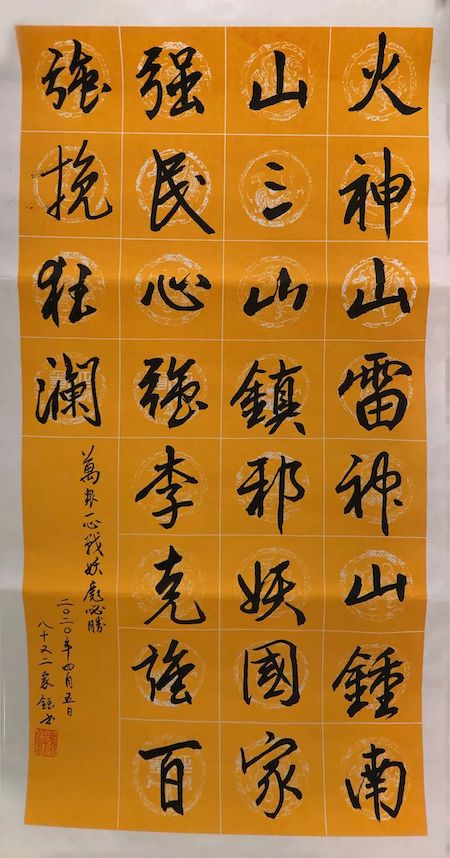 火神山雷神山鍾南
山三山鎮邪妖國家
强民心強李克強百
強挽狂瀾
萬衆一心戰妖魔必勝
二〇二〇年四月五日
八十又二家鈺书